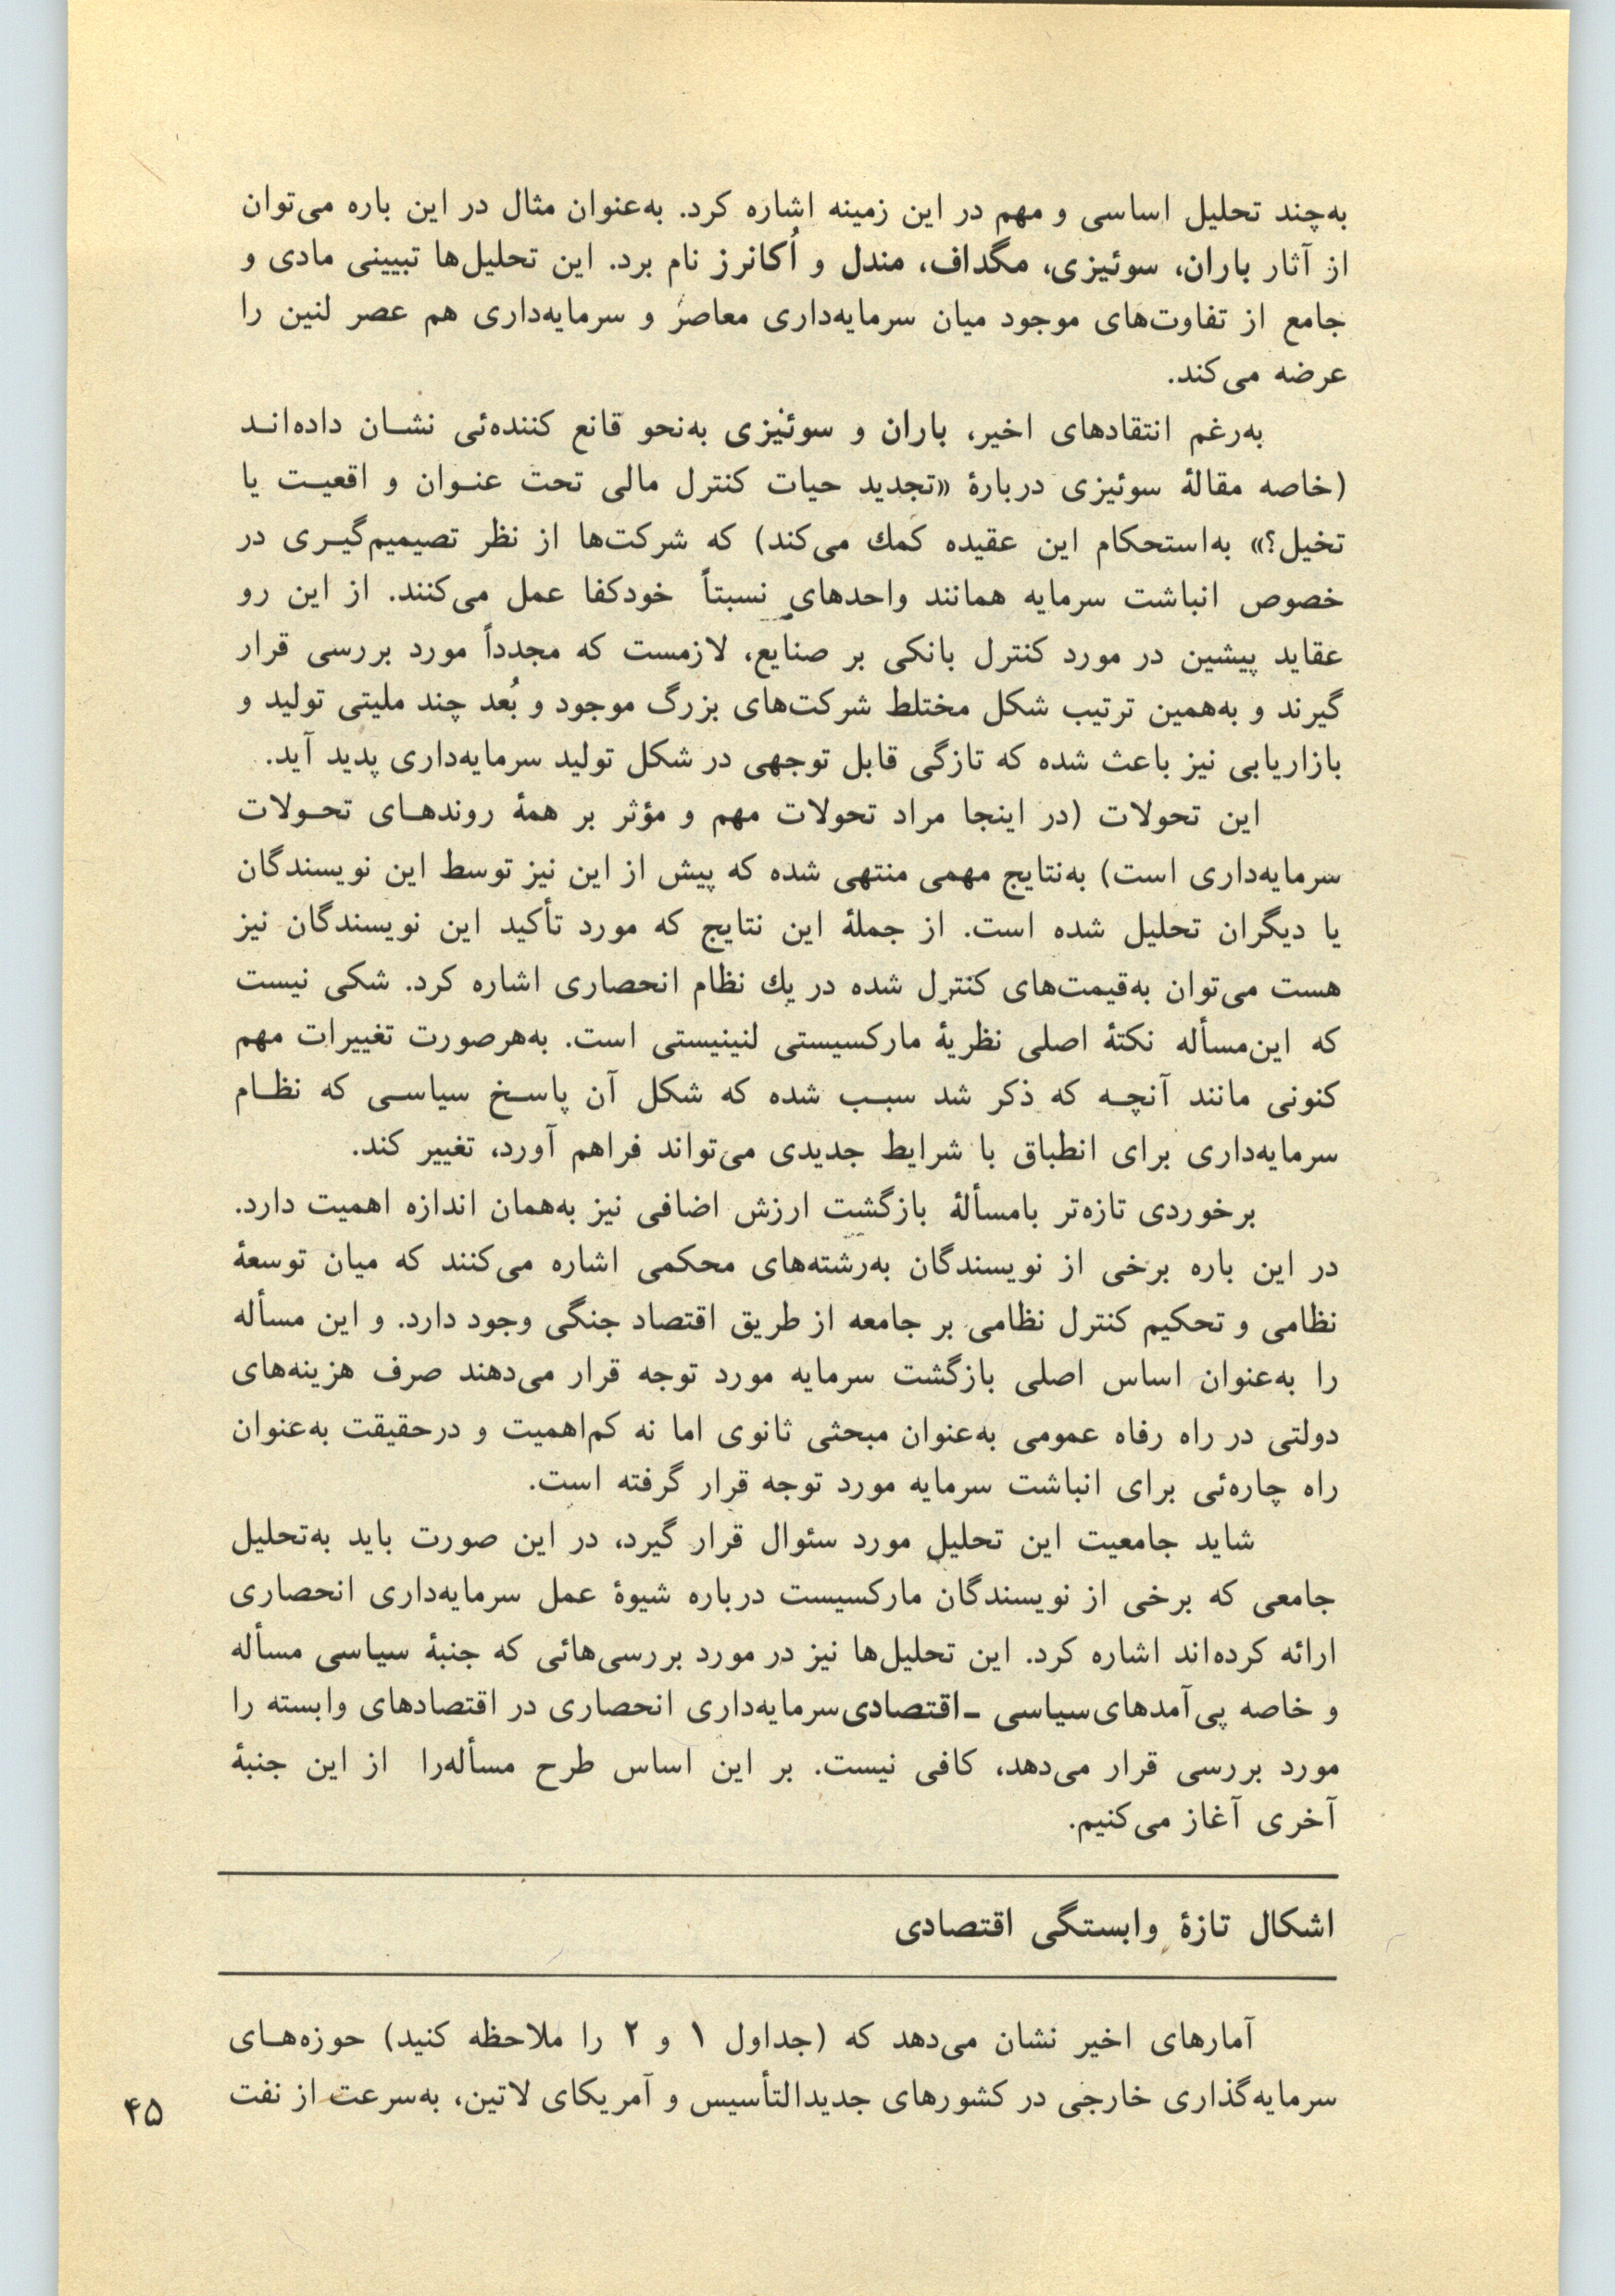 به‌چند تحلیل اساسی و مهم در این زمینه اشاره کرد. به‌عنوان مثال در این باره می‌توان
از آثار باران، سوئیزی، مگداف، مندل و اُکانرز نام برد. این تحلیل‌ها تبیینی مادی و
جامع از تفاوت‌های موجود میان سرمایه‌داری معاصر و سرمایه‌داری هم عصر لنین را
عرضه می‌کند.
به‌رغم انتقادهای اخیر، باران و سوئیزی به‌نحو قانع کننده‌ئی نشــان داده‌انــد
(خاصه مقالهٔ سوئیزی دربارهٔ «تجدید حیات کنترل مالی تحت عنــوان و اقعیــت یا
تخیل؟» به‌استحکام این عقیده کمك می‌کند) که شرکت‌ها از نظر تصیمیم‌گیــری در
خصوص انباشت سرمایه همانند واحدهای نسبتاً خودکفا عمل می‌کنند. از این رو
عقاید پیشین در مورد کنترل بانکی بر صنایع، لازمست که مجدداً مورد بررسی قرار
گیرند و به‌همین ترتیب شکل مختلط شرکت‌های بزرگ موجود و بُعد چند ملیتی تولید و
بازاریابی نیز باعث شده که تازگی قابل توجهی در شکل تولید سرمایه‌داری پدید آید.
این تحولات (در اینجا مراد تحولات مهم و مؤثر بر همهٔ روندهــای تحــولات
سرمایه‌داری است) به‌نتایج مهمی منتهی شده که پیش از این نیز توسط این نویسندگان
یا دیگران تحلیل شده است. از جملهٔ این نتایج که مورد تأکید این نویسندگان نیز
هست می‌توان به‌قیمت‌های کنترل شده در یك نظام انحصاری اشاره کرد. شکی نیست
که این‌مسأله نکتهٔ اصلی نظریهٔ مارکسیستی لنینیستی است. به‌هرصورت تغییرات مهم
کنونی مانند آنچــه که ذکر شد سبــب شده که شکل آن پاســخ سیاســی که نظــام
سرمایه‌داری برای انطباق با شرایط جدیدی می‌تواند فراهم آورد، تغییر کند.
برخوردی تازه‌تر بامسألهٔ بازگشت ارزش اضافی نیز به‌همان اندازه اهمیت دارد.
در این باره برخی از نویسندگان به‌رشته‌های محکمی اشاره می‌کنند که میان توسعهٔ
نظامی و تحکیم کنترل نظامی بر جامعه از طریق اقتصاد جنگی وجود دارد. و این مسأله
را به‌عنوان اساس اصلی بازگشت سرمایه مورد توجه قرار می‌دهند صرف هزینه‌های
دولتی در راه رفاه عمومی به‌عنوان مبحثی ثانوی اما نه کم‌اهمیت و درحقیقت به‌عنوان
راه چاره‌ئی برای انباشت سرمایه مورد توجه قرار گرفته است.
شاید جامعیت این تحلیل مورد سئوال قرار گیرد، در این صورت باید به‌تحلیل
جامعی که برخی از نویسندگان مارکسیست درباره شیوهٔ عمل سرمایه‌داری انحصاری
ارائه کرده‌اند اشاره کرد. این تحلیل‌ها نیز در مورد بررسی‌هائی که جنبهٔ سیاسی مسأله
و خاصه پی‌آمدهای سیاسی ـ اقتصادی سرمایه‌داری انحصاری در اقتصادهای وابسته را
مورد بررسی قرار می‌دهد، کافی نیست. بر این اساس طرح مسأله‌را از این جنبهٔ
آخری آغاز می‌کنیم.
اشکال تازهٔ وابستگی اقتصادی
آمارهای اخیر نشان می‌دهد که (جداول ۱ و ۲ را ملاحظه کنید) حوزه‌هــای
سرمایه‌گذاری خارجی در کشورهای جدیدالتأسیس و آمریکای لاتین، به‌سرعت از نفت
۴۵